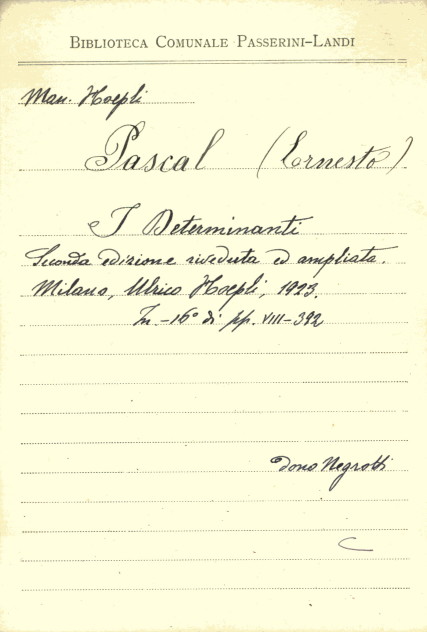 BIBLIOTECA COMUNALE PASSERINI-LANDI
Man. Hoepli
Pascal (Ernesto)
I Determinanti
Seconda edizione riveduta ed ampliata.
Milano, Ulrico Hoepli, 1923.
In-16° di pp. VIII-392
dono Negrotti